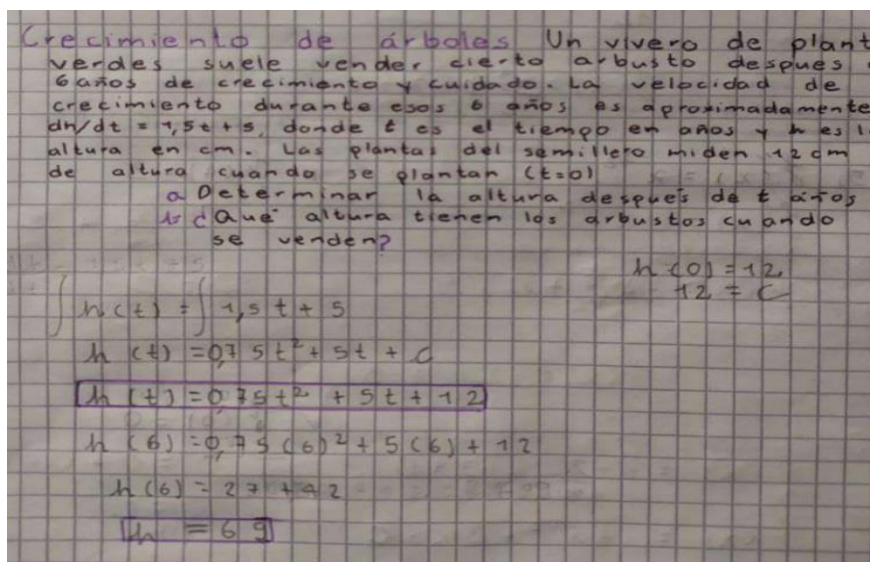 Crecimiento de árboles Un vivero de plant
verdes suele vender cierto arbusto despues
6 años de crecimiento y cuidado. La velocidad de
crecimiento durante esos 6 años es aproximadamente
dh/dt = 1,5t + 5, donde t es el tiempo en años y h es l
altura en cm. Las plantas del semillero miden 12 cm
de altura cuando se plantan (t=0)
a Determinar la altura después de t años
b ¿Qué altura tienen los arbustos cuando
se venden?
h(0) = 12
12 = C
∫ h(t) = ∫ 1,5t + 5
h(t) = 0,75t² + 5t + C
h(t) = 0,75t² + 5t + 12
h(6) = 0,75(6)² + 5(6) + 12
h(6) = 27 + 42
h = 69